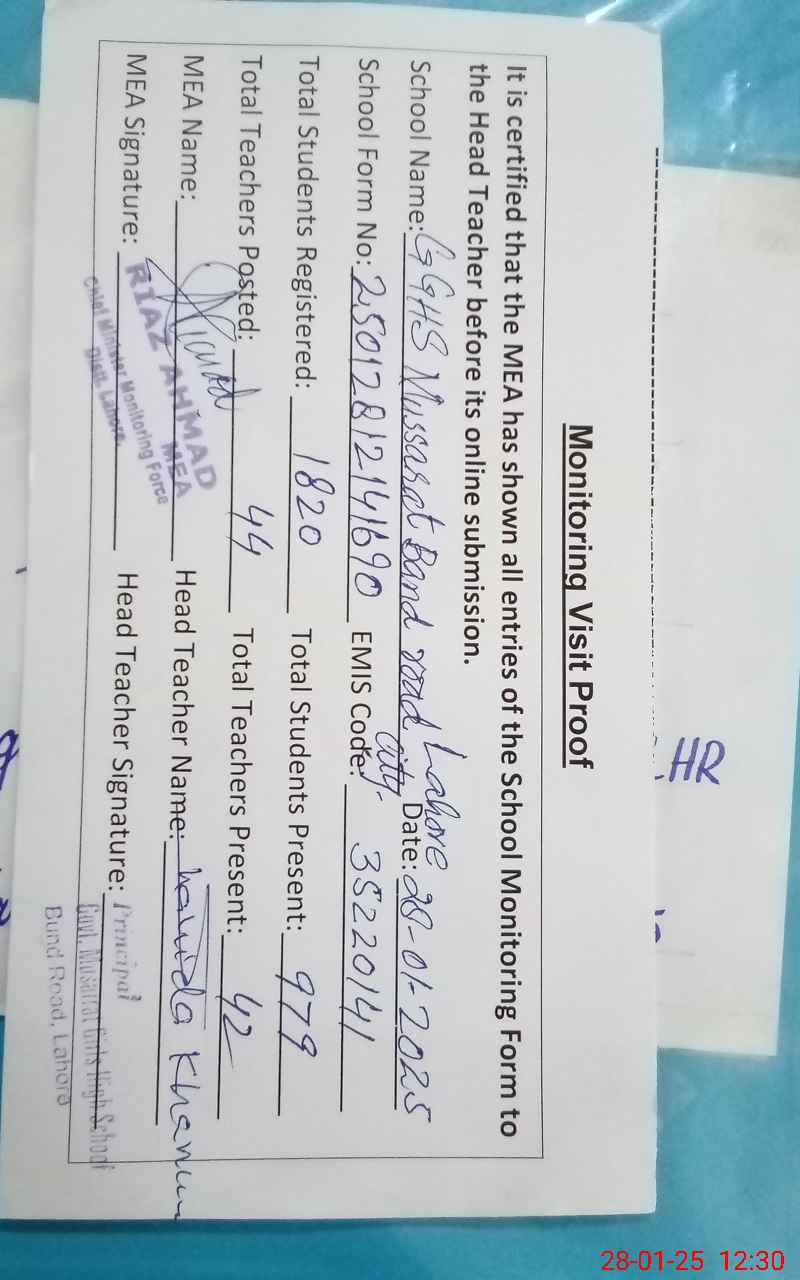 Monitoring Visit Proof
It is certified that the MEA has shown all entries of the School Monitoring Form to
the Head Teacher before its online submission.
School Name: GGHS Mussarat Band road Lahore Date: 28-01-2025
city.
School Form No: 25012812141690 EMIS Code: 35220141
Total Students Registered: 1820 Total Students Present: 979
Total Teachers Posted: 44 Total Teachers Present: 42
MEA Name: Head Teacher Name: Khanum
MEA Signature: Head Teacher Signature:
RIAZ AHMAD
MEA
Chief Minister Monitoring Force
Distt. Lahore.
Principal
Govt. Musarrat Girls High School
Bund Road, Lahore
HR
28-01-25 12:30